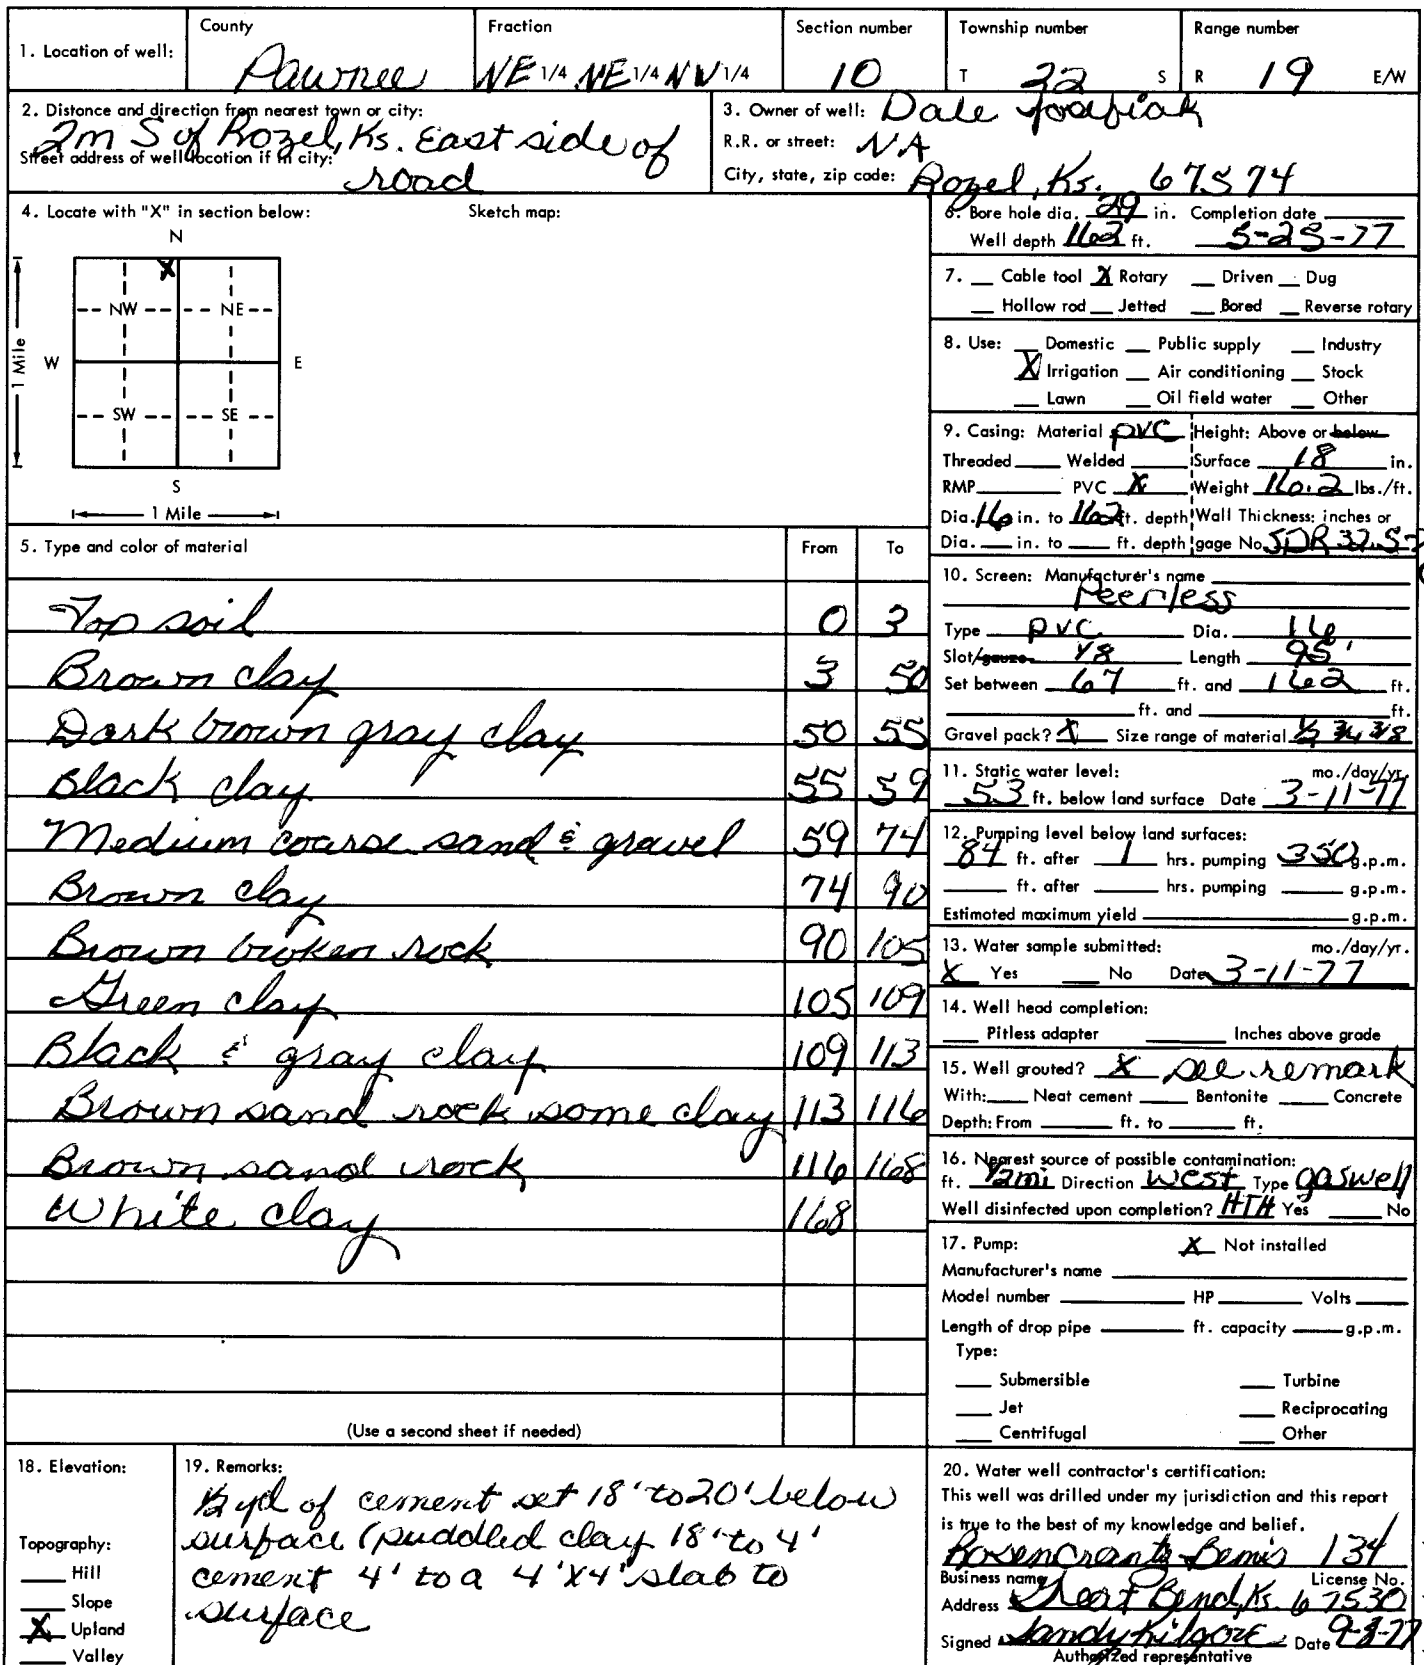 County Fraction Section number Township number Range number
1. Location of well: Pawnee NE 1/4 NE 1/4 NW 1/4 10 T 22 S R 19 E/W
2. Distance and direction from nearest town or city:
2m S of Rozel, Ks. East side of
Street address of well location if in city:
road
3. Owner of well: Dale
R.R. or street: NA
City, state, zip code: Rozel, Ks. 67574
4. Locate with "X" in section below: Sketch map:
N
X
NW NE
W E
1 Mile
SW SE
S
1 Mile
6. Bore hole dia. 29 in. Completion date
Well depth 162 ft. 5-25-77
7. Cable tool X Rotary Driven Dug
Hollow rod Jetted Bored Reverse rotary
8. Use: Domestic Public supply Industry
X Irrigation Air conditioning Stock
Lawn Oil field water Other
9. Casing: Material PVC Height: Above or below
Threaded Welded Surface 18 in.
RMP PVC X Weight 16.2 lbs./ft.
Dia. 16 in. to 162 ft. depth Wall Thickness: inches or
Dia. in. to ft. depth gage No. SDR 32.5
10. Screen: Manufacturer's name
Peerless
Type PVC Dia. 16
Slot/gauze 1/8 Length 95'
Set between 67 ft. and 162 ft.
ft. and ft.
Gravel pack? X Size range of material
11. Static water level: mo./day/yr.
53 ft. below land surface Date 3-11-77
12. Pumping level below land surfaces:
84 ft. after 1 hrs. pumping 350 g.p.m.
ft. after hrs. pumping g.p.m.
Estimated maximum yield g.p.m.
13. Water sample submitted: mo./day/yr.
X Yes No Date 3-11-77
14. Well head completion:
Pitless adapter Inches above grade
15. Well grouted? X See remark
With: Neat cement Bentonite Concrete
Depth: From ft. to ft.
16. Nearest source of possible contamination:
ft. 1/2 mi Direction West Type gaswell
Well disinfected upon completion? HTH Yes No
17. Pump: X Not installed
Manufacturer's name
Model number HP Volts
Length of drop pipe ft. capacity g.p.m.
Type:
Submersible Turbine
Jet Reciprocating
Centrifugal Other
5. Type and color of material From To
Top soil 0 3
Brown clay 3 50
Dark brown gray clay 50 55
Black clay 55 59
Medium coarse sand & gravel 59 74
Brown clay 74 90
Brown broken rock 90 105
Green clay 105 109
Black & gray clay 109 113
Brown sand rock some clay 113 116
Brown sand rock 116 168
White clay 168
(Use a second sheet if needed)
18. Elevation:
Topography:
Hill
Slope
X Upland
Valley
19. Remarks:
1/2 yd of cement set 18' to 20' below
surface (puddled clay 18' to 4'
cement 4' to a 4'X4' slab to
surface
20. Water well contractor's certification:
This well was drilled under my jurisdiction and this report
is true to the best of my knowledge and belief.
Rosencrantz-Bemis 134
Business name License No.
Address Great Bend, Ks. 67530
Signed Sandy Kilgore Date 9-8-77
Authorized representative